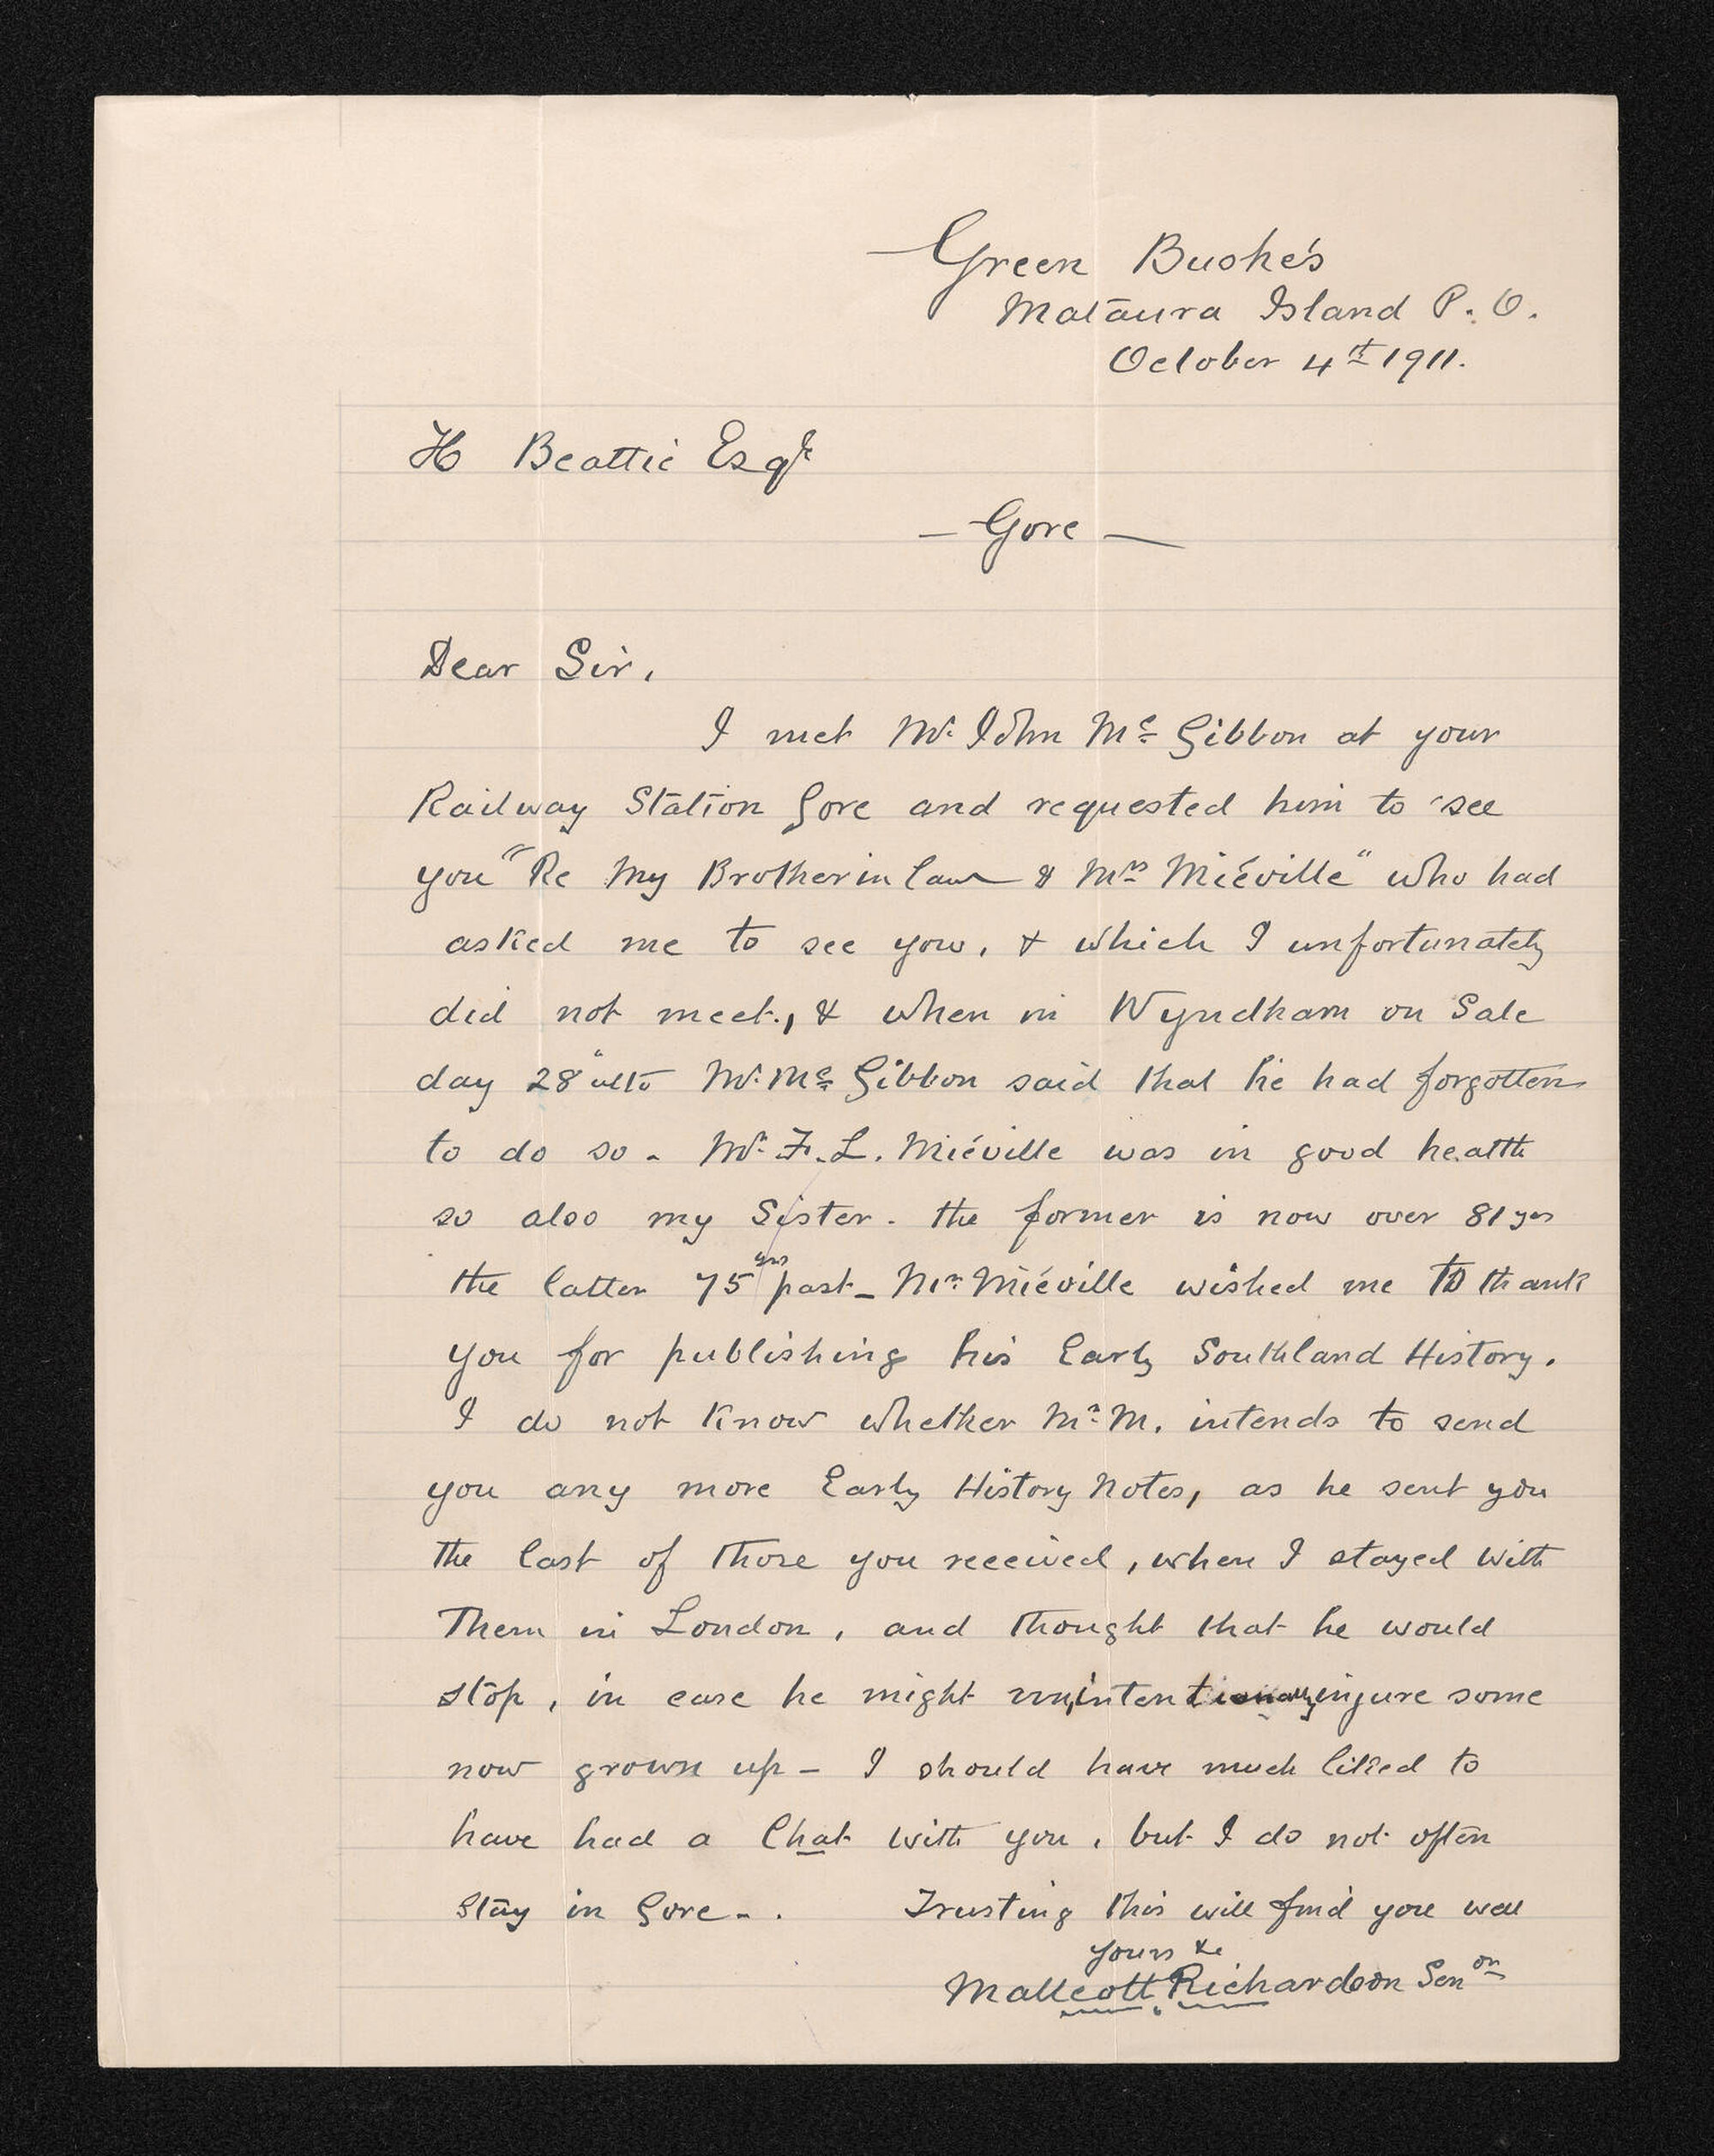 Green Bushe's
Mataura Island P. O.
October 4th 1911.
H Beattie Esqr
— Gore —
Dear Sir,
I met Mr. John Mc Gibbon at your
Railway Station Gore and requested him to see
you "Re My Brother in law & Mrs Miéville" who had
asked me to see you, & which I unfortunately
did not meet., & when in Wyndham on Sale
day 28" ulto Mr. Mc Gibbon said that he had forgotten
to do so - Mr. F. L. Miéville was in good health
so also my Sister. the former is now over 81 yrs
the latter 75 yrs past - Mr. Miéville wished me to thank
you for publishing his Early Southland History.
I do not know whether Mr. M. intends to send
you any more Early History Notes, as he sent you
the last of those you received, when I stayed with
Them in London, and thought that he would
stop, in case he might unintentionally injure some
now grown up - I should have much liked to
have had a Chat with you, but I do not often
stay in Gore - . Trusting this will find you well
yours &c
Mallcott Richardson Senor